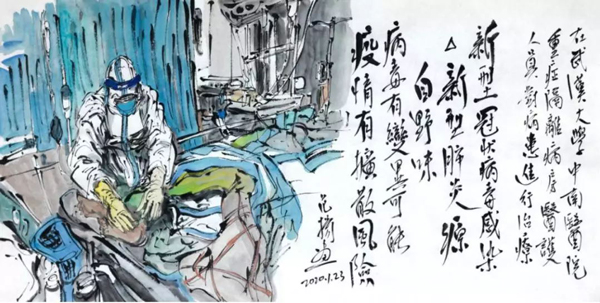 在武漢大學中南醫院
重症隔離病房醫護
人員對病患進行治療
新型冠狀病毒感染
△新型肺炎源
自野味
病毒有變異可能
疫情有擴散風險
2020.1.23